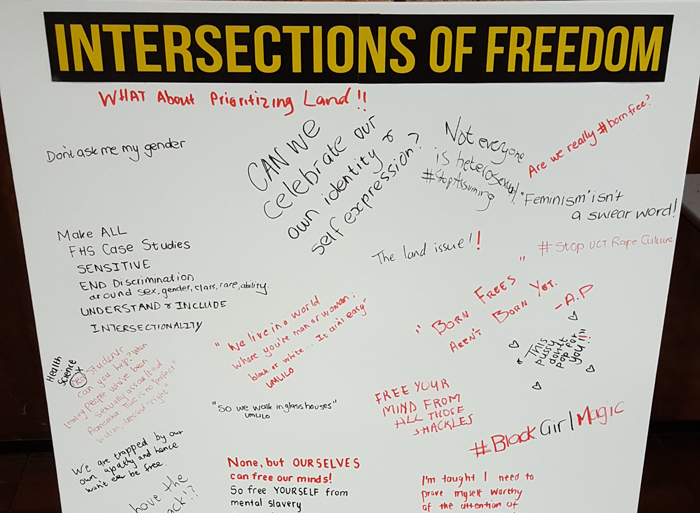 INTERSECTIONS OF FREEDOM
WHAT About Prioritizing Land!!
Don't ask me my gender
CAN WE
celebrate our
own identity &
self expression?
Not everyone
is heterosexual.
#StopAssuming
Are we really #bornfree?
"Feminism" isn't
a swear word!
The land issue!!
#Stop UCT Rape Culture
Make ALL
FHS Case Studies
SENSITIVE
END Discrimination
around sex, gender, class, race, ability
UNDERSTAND & INCLUDE
INTERSECTIONALITY
"We live in a world
where you're man or woman;
black or white. It ain't easy"
UMLILO
"BORN FREES"
AREN'T BORN YET.
-A.P
"This
pussy
don't
pop for
you!!"
Health
Science
students
can you help
people who've been
sexually assaulted
"So we walk in glass houses"
UMLILO
FREE YOUR
MIND FROM
ALL THOSE
SHACKLES
#BlackGirlMagic
We are trapped by our
own apathy and hence
won't ever be free.
None, but OURSELVES
can free our minds!
So free YOURSELF from
mental slavery
I'm taught I need to
prove myself worthy
of the attention of
the